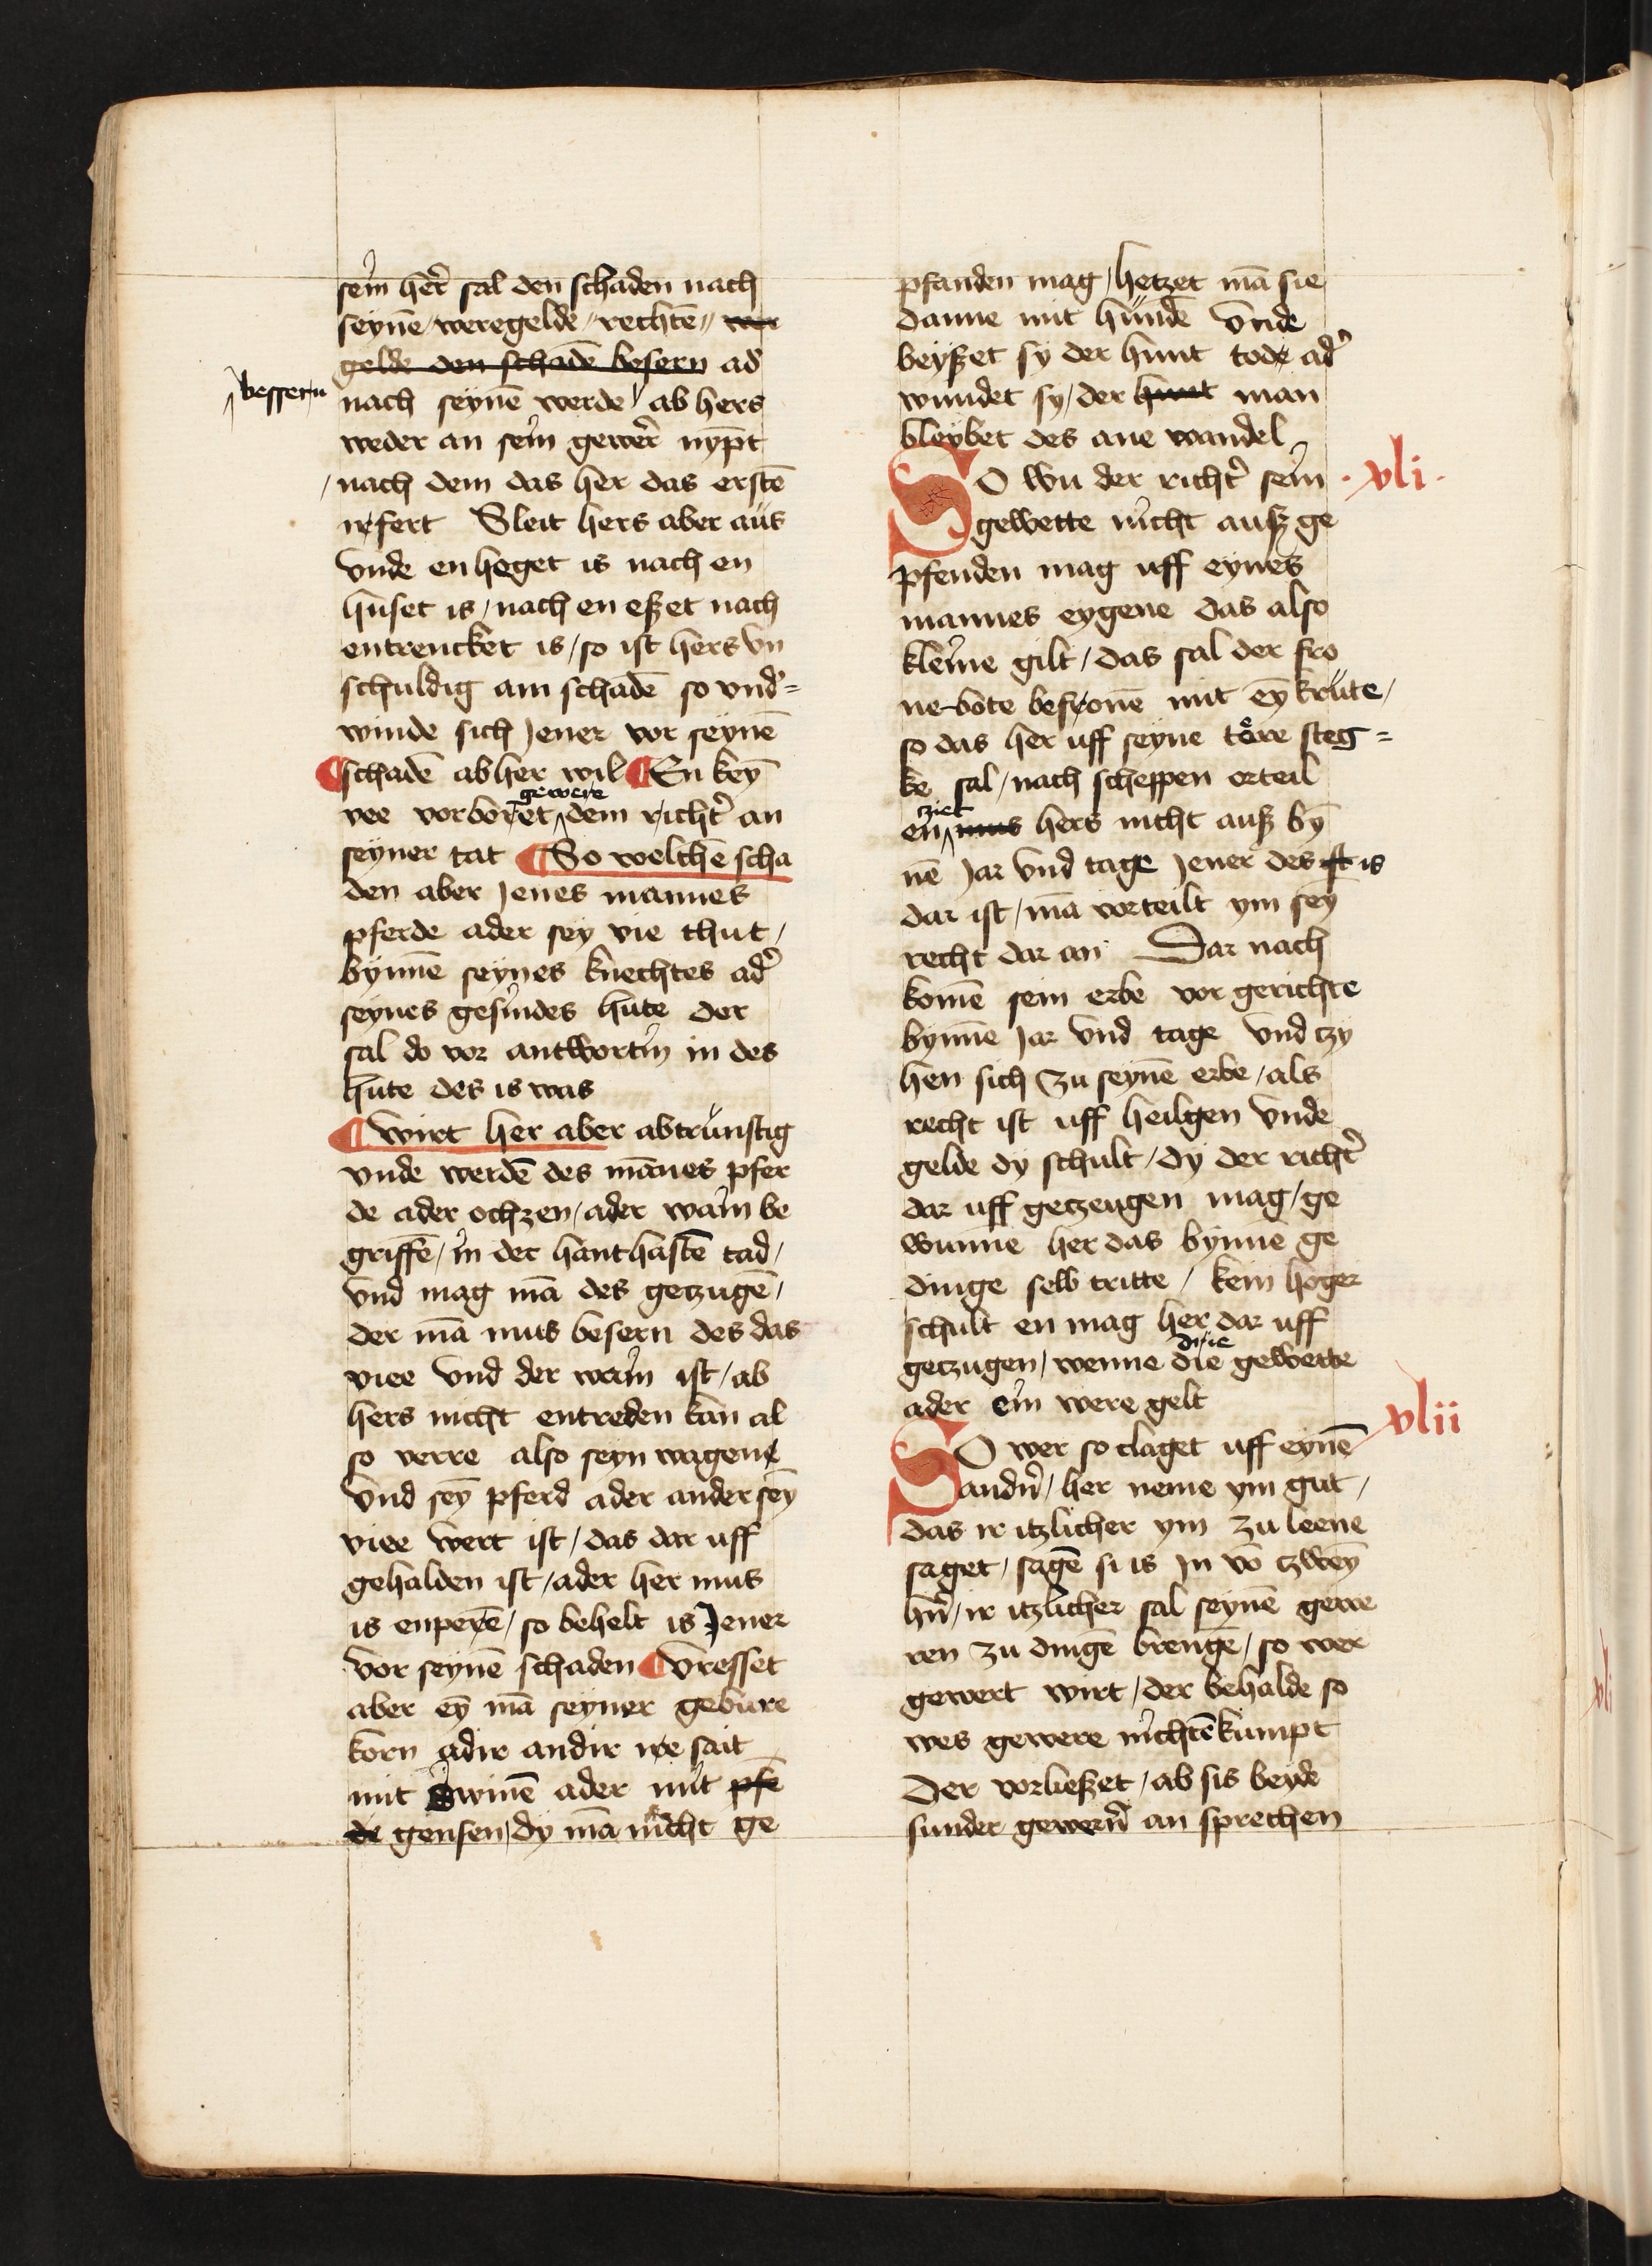 sein her̄ sal den schaden nach
seynē weregelde rechtē wer
gelde den schadē besern ad
bessern
nach seynē werde ab hers
weder an sein gewer̄ nÿpt
nach dem das her das erstē
irfert Sleit hers aber aüs
vnde en heget is nach en
huset is / nach en eßet nach
entrencket is / so ist hers vn
schuldig am schadē so vnd'=
winde sich Jener vor seynē
¶ schadē ab her wil ¶ En keȳ
gewere
vee vorboret dem richt' an
seyner tat ¶ So welchē scha
den aber Jenes mannes
pferde ader sey vie thut /
bynnē seynes knechtes ad'
seynes gesindes hute der
sal do vor antwortin in des
hute des is was
¶ wirt her aber abtrünstig
vnde werdē des mānes pfer
de ader ochzen / ader wain be
griffē / in der hanthastē tad /
vnd mag mā des geczugē /
der mā mus besern des das
viee vnd der wain ist / ab
hers nicht entreden kan al
so verre also seyn wagene
vnd sēy pferd ader ander sēy
viee wert ist / das dar uff
gehalden ist / ader her mus
is enperē / so behelt is Jener
vor seynē schaden ¶ vresset
aber eȳ mā seyner gebure
korn adir andir ire sait
mit swinē ader mit pfe
de gensen / dy mā nicht ge
pfanden mag / hetzet mā sie
danne mit hündē vnde
beyßet sy der hunt tode ad'
wundet sy / der hunt man
bleybet des ane wandel
SO wu der richt' sein
· xli ·
gewette nicht außz ge
pfenden mag uff eynes
mannes eygene das also
kleine gilt / das sal der fro
ne bote besronē mit eȳ krüte /
so das her uff seyne töre steg=
ke sal / nach scheppen orteil
ziet
en mus hers nicht auß bȳ
nē Jar vnd tage Jener des st is
dar ist / mā vorteilt ym sēy
recht dar an Dar nach
komē sein erbe vor gerichte
bynne Jar vnd tage vnd czy
hen sich zu seynē erbe / als
recht ist uff heilgen vnde
gelde dy schult / dy der richt'
dar uff geczeugen mag / ge
wunne her das bynne ge
dinge selb tritte / kein hoger
schult en mag her dar uff
drie
geczugen / wenne die gewette
ader ein were gelt
xlii
SO wer so claget uff eynē
andr̄ / her neme ym gut /
das ir itzlicher ym zu leene
saget / sagē si is In vō czwēy
hr̄n / ir itzlicher sal seynē gewe
ren zu dingē brengē / so wer
gewert wirt / der behalde so
wes gewere nichtē kumpt
Der vorließet / ab sis beyde
sunder gewer̄n an sprechen